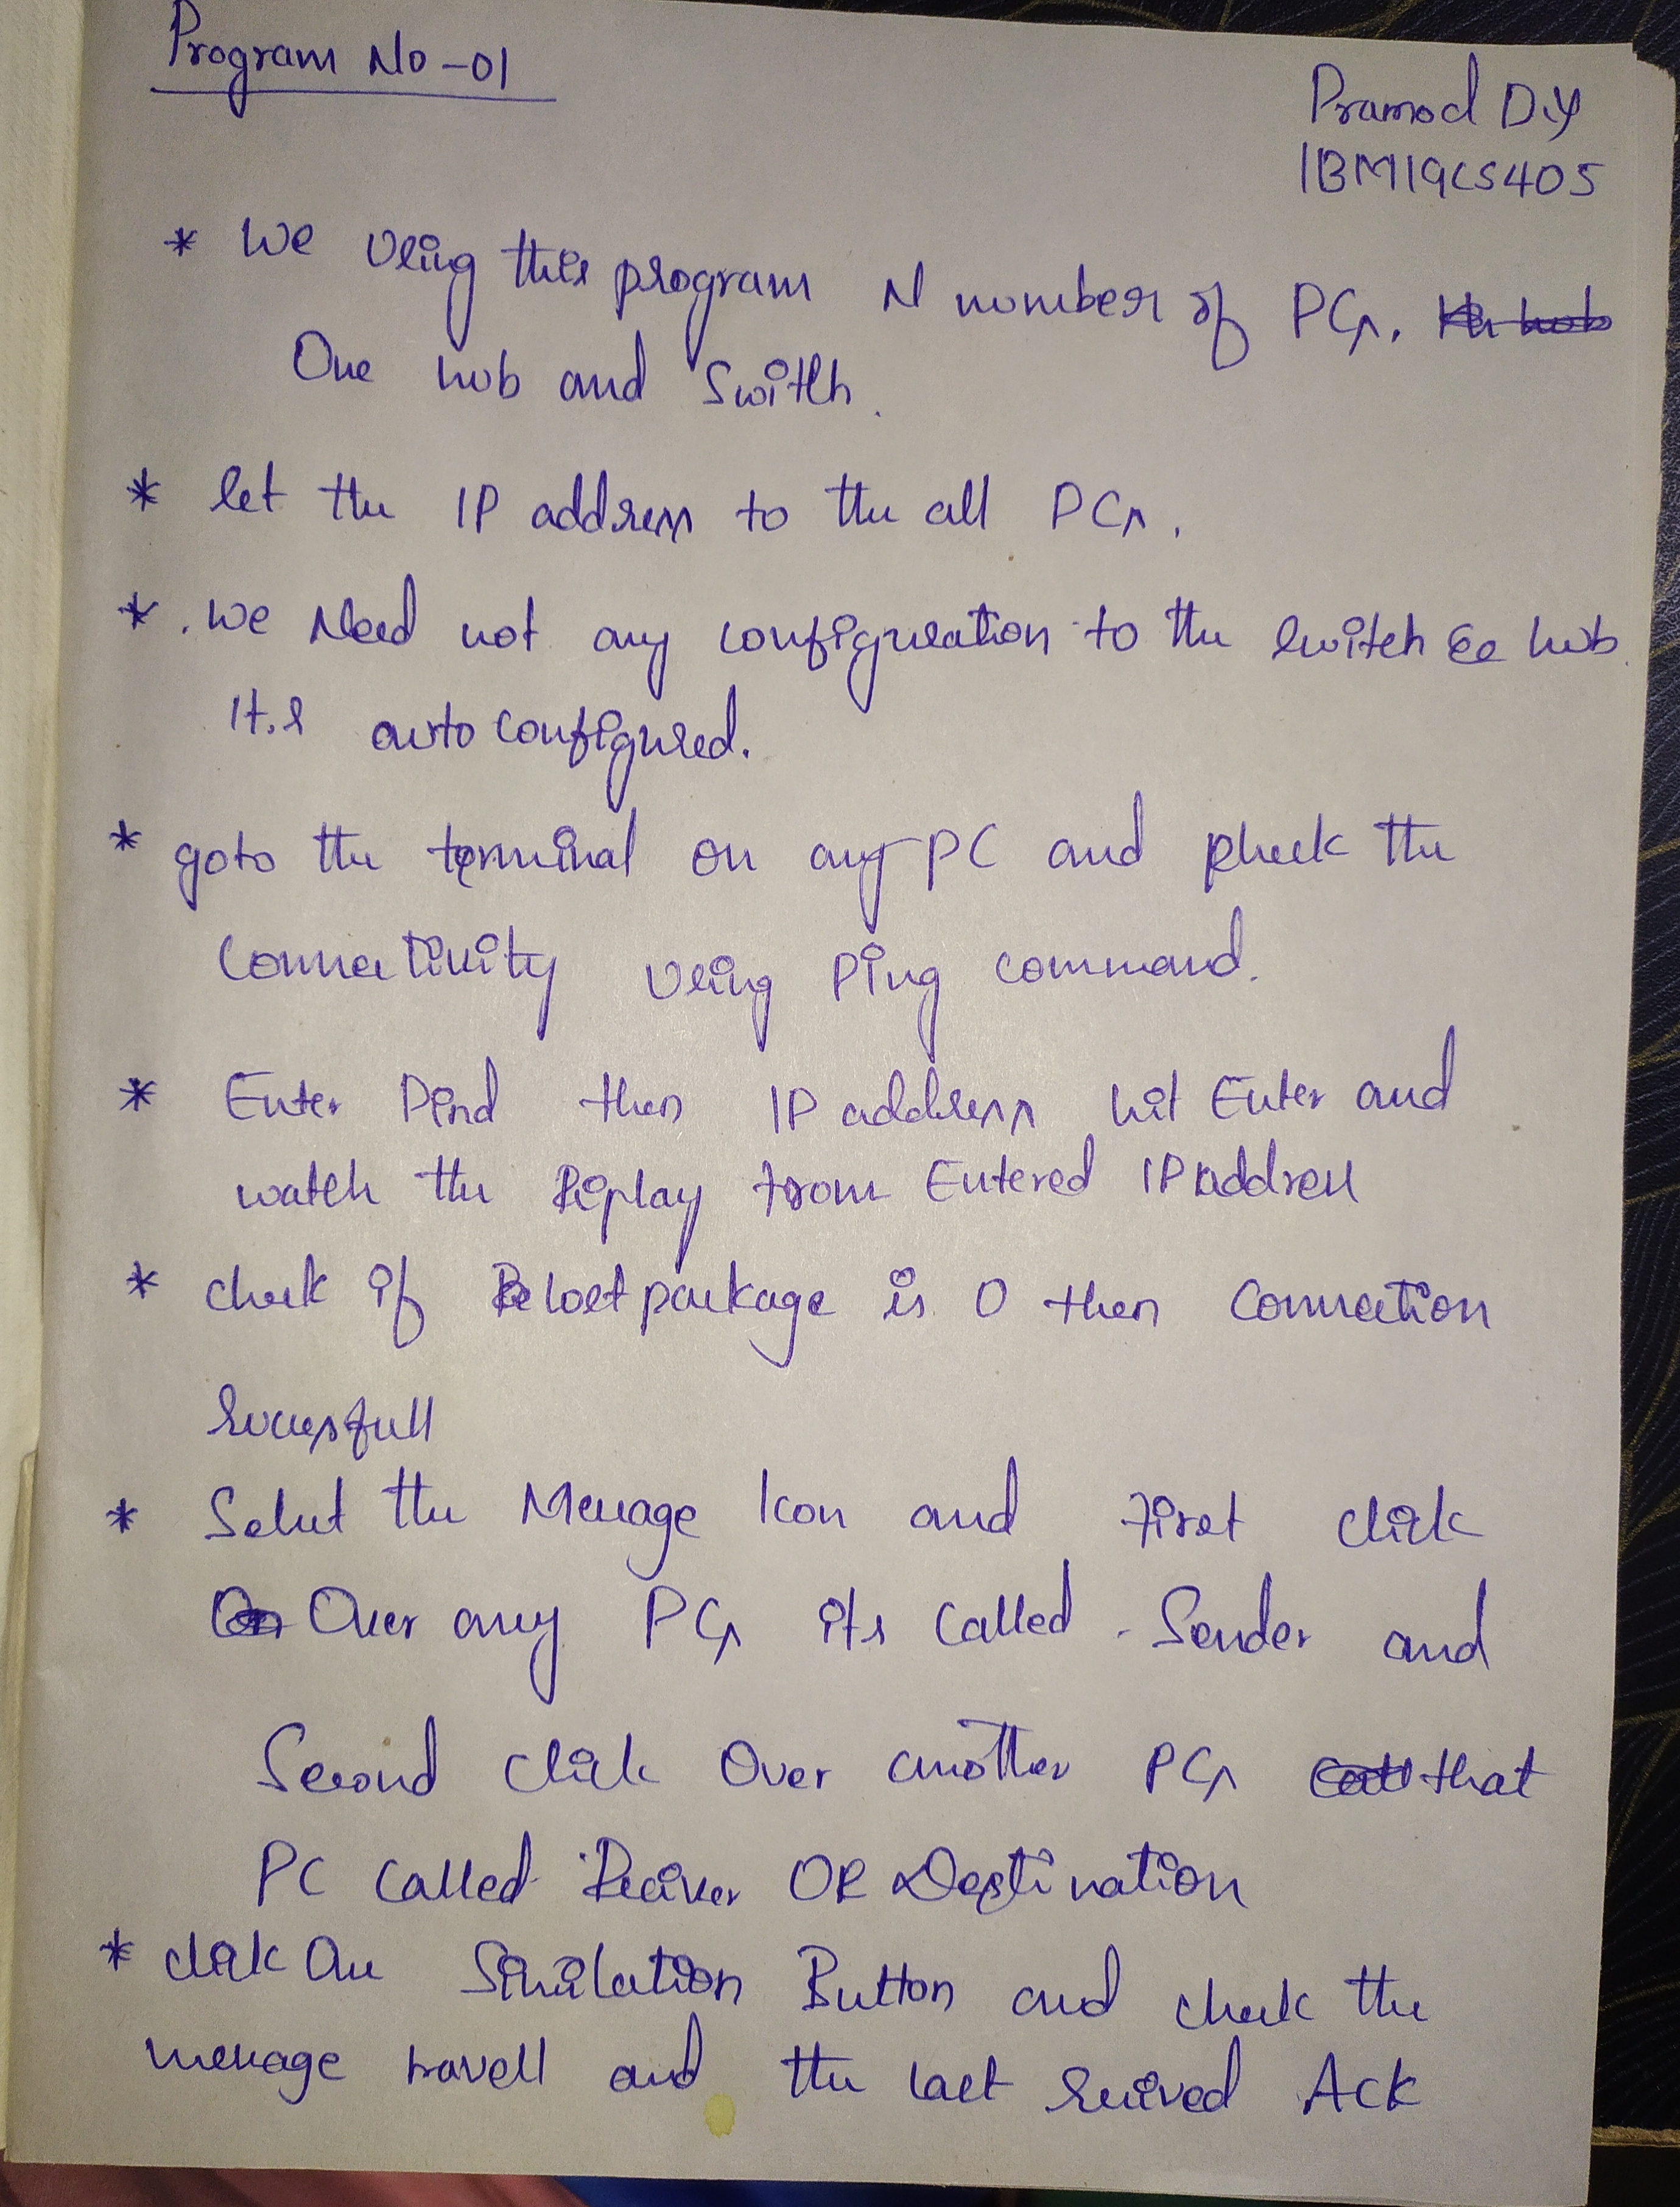 Program No -01
Pramod D.Y
1BM19CS405
* We Using this program N number of PCs.
One hub and Switch.
* Set the IP address to the all PCs.
* . we Need not any configuration to the Switch & hub
It.s auto configured.
* goto the terminal on any PC and check the
Connectivity Using Ping command.
* Enter Pind then IP address hit Enter and
watch the Riplay from Entered IP address
* check if lost package is 0 then Connection
Sucessfull
* Select the Message Icon and First click
Over any PCs its Called Sender and
Second click Over another PCs that
PC Called Reciver OR Destination
* click On Similation Button and check the
message travell and the last reeived Ack